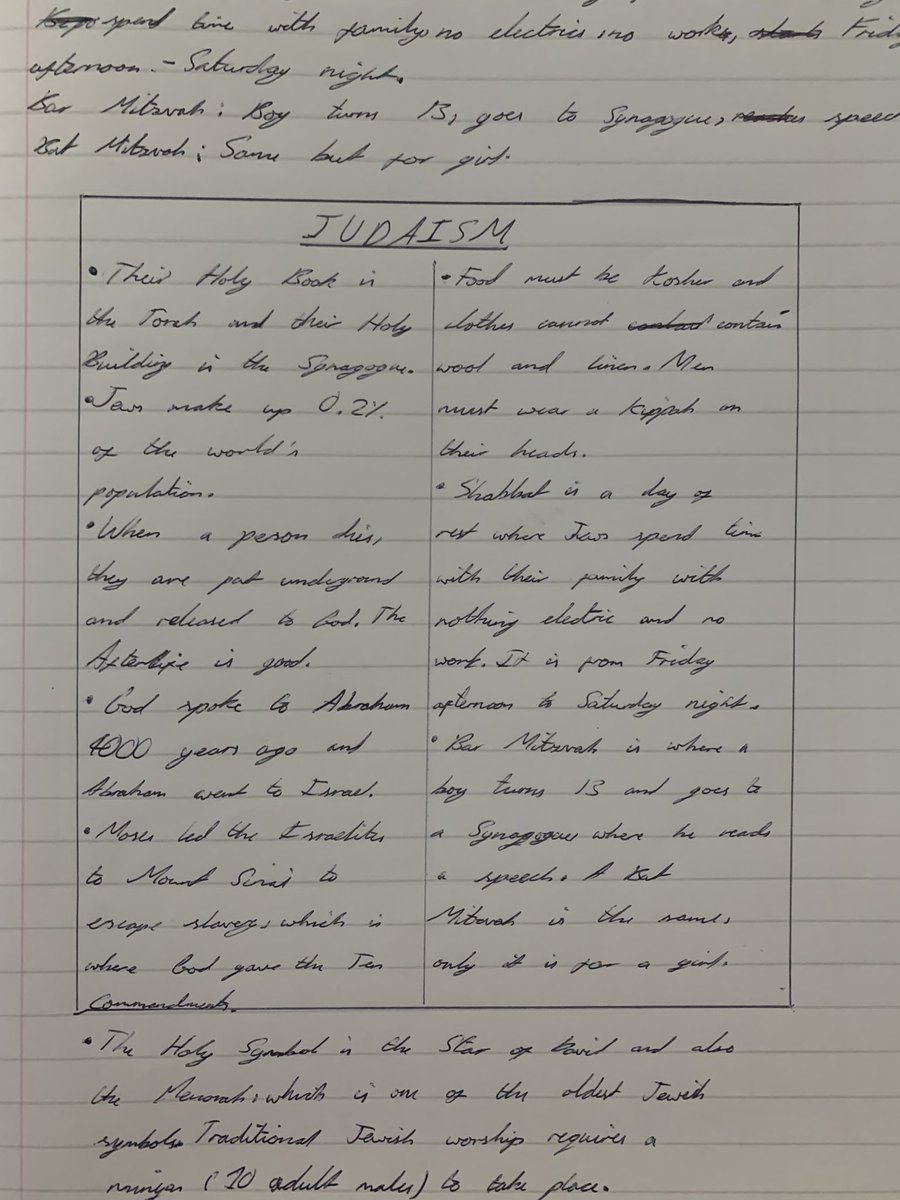 spend time with family, no electrics, no work, Friday
afternoon - Saturday night.
Bar Mitzvah: Boy turns 13, goes to Synagogue, speech
Bat Mitzvah: Same but for girl.
JUDAISM
• Their Holy Book is
the Torah and their Holy
Building is the Synagogue.
• Jews make up 0.2%
of the world's
population.
• When a person dies,
they are put undeground
and released to God. The
Afterlife is good.
• God spoke to Abraham
4000 years ago and
Abraham went to Israel.
• Moses led the Israelites
to Mount Sinai to
escape slavery, which is
where God gave the Ten
Commandments.
• Food must be Kosher and
clothes cannot contain
wool and linen. Men
must wear a Kippah on
their heads.
• Shabbat is a day of
rest where Jews spend time
with their family with
nothing electric and no
work. It is from Friday
afternoon to Saturday night.
• Bar Mitzvah is where a
boy turns 13 and goes to
a Synagogue where he reads
a speech. A Bat
Mitzvah is the same,
only it is for a girl.
• The Holy Symbol is the Star of David and also
the Menorah, which is one of the oldest Jewish
symbols. Traditional Jewish worship requires a
minyan (10 adult males) to take place.